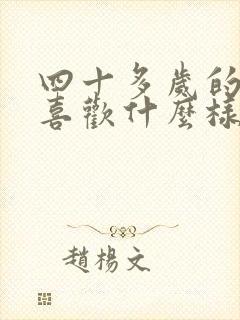 四十多歲的
喜歡什麼樣
趙楊文